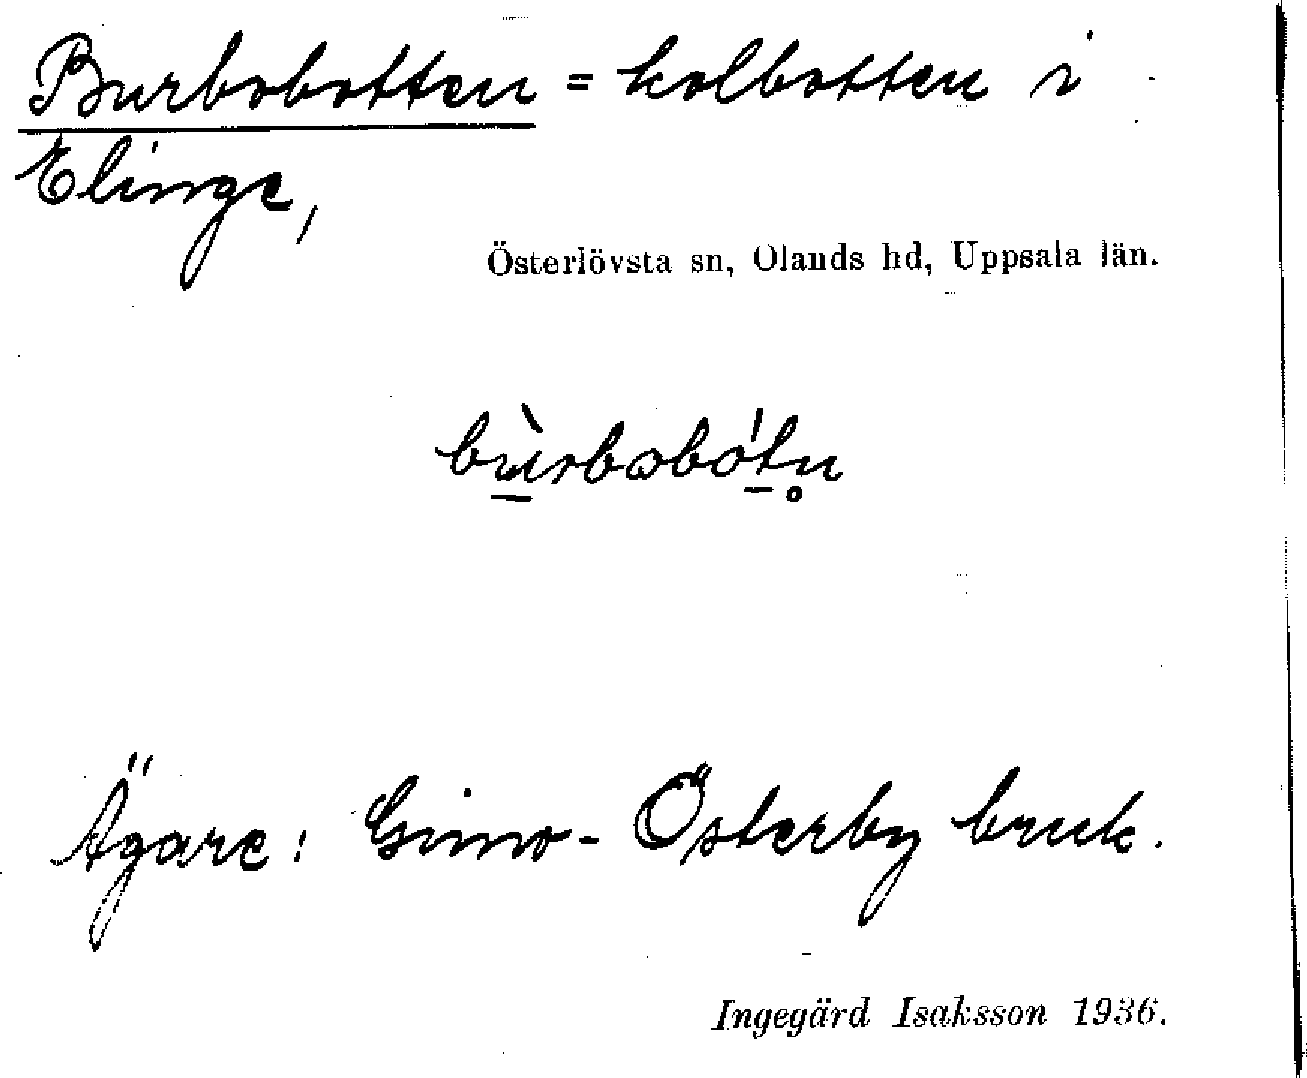 Burbobotten = kolbotten i
Elinge,
Österlövsta sn, Olands hd, Uppsala län.
bùrbobótn̥
Ägare: Gimo-Österby bruk.
Ingegärd Isaksson 1936.